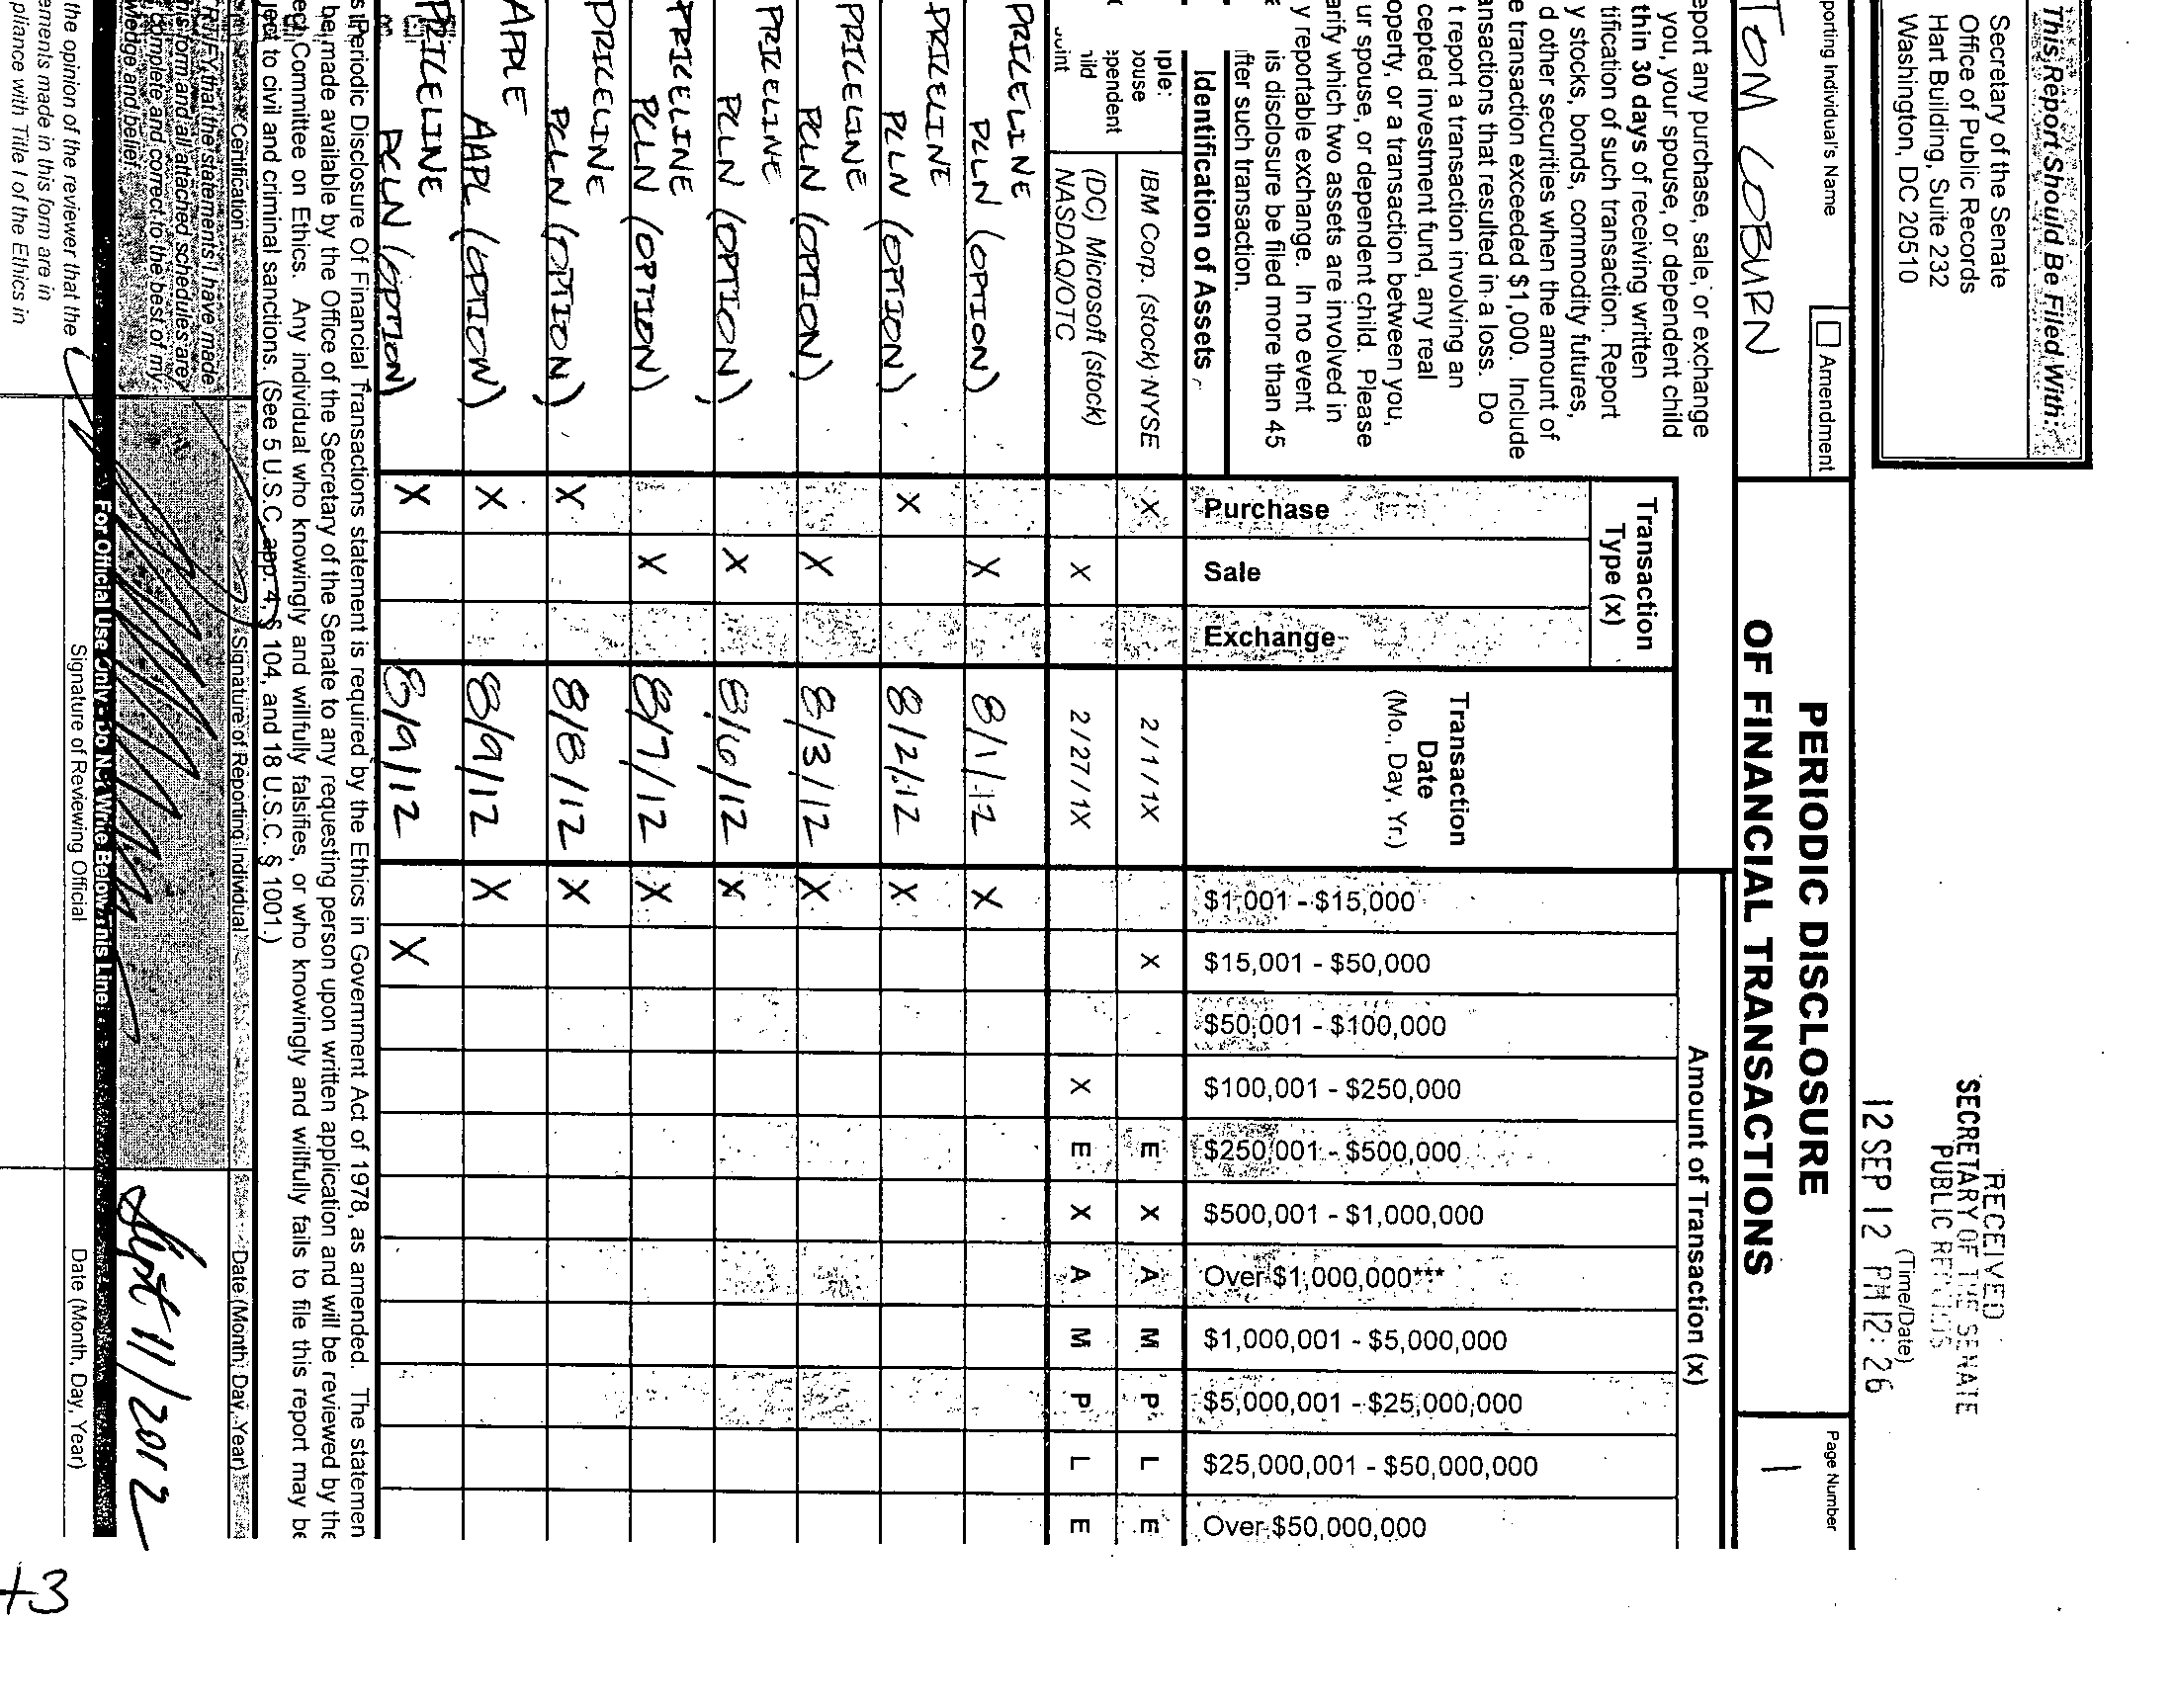 This Report Should Be Filed With:
Secretary of the Senate
Office of Public Records
Hart Building, Suite 232
Washington, DC 20510
RECEIVED
SECRETARY OF THE SENATE
PUBLIC
(Time/Date)
12 SEP 12 PM 12: 26
porting Individual's Name
Amendment
TOM COBURN
PERIODIC DISCLOSURE
OF FINANCIAL TRANSACTIONS
Page Number
1
eport any purchase, sale, or exchange
you, your spouse, or dependent child
thin 30 days of receiving written
tification of such transaction. Report
y stocks, bonds, commodity futures,
d other securities when the amount of
e transaction exceeded $1,000. Include
ansactions that resulted in a loss. Do
t report a transaction involving an
cepted investment fund, any real
operty, or a transaction between you,
ur spouse, or dependent child. Please
arify which two assets are involved in
y reportable exchange. In no event
is disclosure be filed more than 45
fter such transaction.
Identification of Assets
Transaction
Type (x)
Purchase
Sale
Exchange
Transaction
Date
(Mo., Day, Yr.)
Amount of Transaction (x)
$1,001 - $15,000
$15,001 - $50,000
$50,001 - $100,000
$100,001 - $250,000
$250,001 - $500,000
$500,001 - $1,000,000
Over $1,000,000***
$1,000,001 - $5,000,000
$5,000,001 - $25,000,000
$25,000,001 - $50,000,000
Over $50,000,000
ple:
ouse
ependent
hild
oint
IBM Corp. (stock) NYSE X 2/1/1X X E X A M P L E
(DC) Microsoft (stock)
NASDAQ/OTC X 2/27/1X X E X A M P L E
PRICELINE
PCLN (OPTION) X 8/1/12 X
PRICELINE
PCLN (OPTION) X 8/2/12 X
PRICELINE
PCLN (OPTION) X 8/3/12 X
PRICELINE
PCLN (OPTION) X 8/6/12 X
PRICELINE
PCLN (OPTION) X 8/7/12 X
PRICELINE
PCLN (OPTION) X 8/8/12 X
APPLE
AAPL (OPTION) X 8/9/12 X
PRICELINE
PCLN (OPTION) X 8/9/12 X
s Periodic Disclosure Of Financial Transactions statement is required by the Ethics in Government Act of 1978, as amended. The statemen
be made available by the Office of the Secretary of the Senate to any requesting person upon written application and will be reviewed by the
ect Committee on Ethics. Any individual who knowingly and willfully falsifies, or who knowingly and willfully fails to file this report may be
ject to civil and criminal sanctions. (See 5 U.S.C. app. 4, § 104, and 18 U.S.C. § 1001.)
Certification
Signature of Reporting Individual
Date (Month, Day, Year)
RTIFY that the statements I have made
his form and all attached schedules are
complete and correct to the best of my
wledge and belief.
Sept 11/2012
For Official Use Only - Do Not Write Below This Line
the opinion of the reviewer that the
ements made in this form are in
pliance with Title I of the Ethics in
Signature of Reviewing Official
Date (Month, Day, Year)
+3